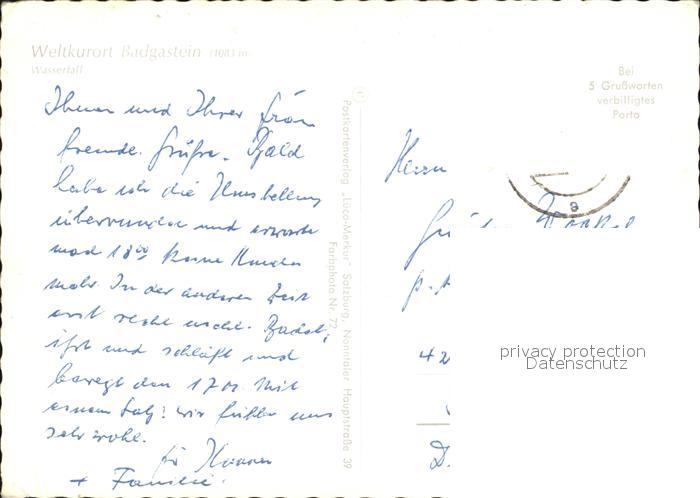 Weltkurort Badgastein (1083 m)
Wasserfall
Bei
5 Grußworten
verbilligtes
Porto
Postkartenverlag „Uco-Merkur“ Salzburg, Nonntaler Hauptstraße 39
Farbphoto Nr. 72
Ihnen und Ihrer
Grüße. Bald
habe ich die Umstellung
überwunden und erwarte
nach 18⁰⁰ keine Kunden
mehr. In der anderen Zeit
erst recht nicht. Badet,
ißt und schläft und
bewegt den
einem Satz: wir fühlen uns
sehr wohl.
+ Familie.
Herrn
42
D.
privacy protection
Datenschutz